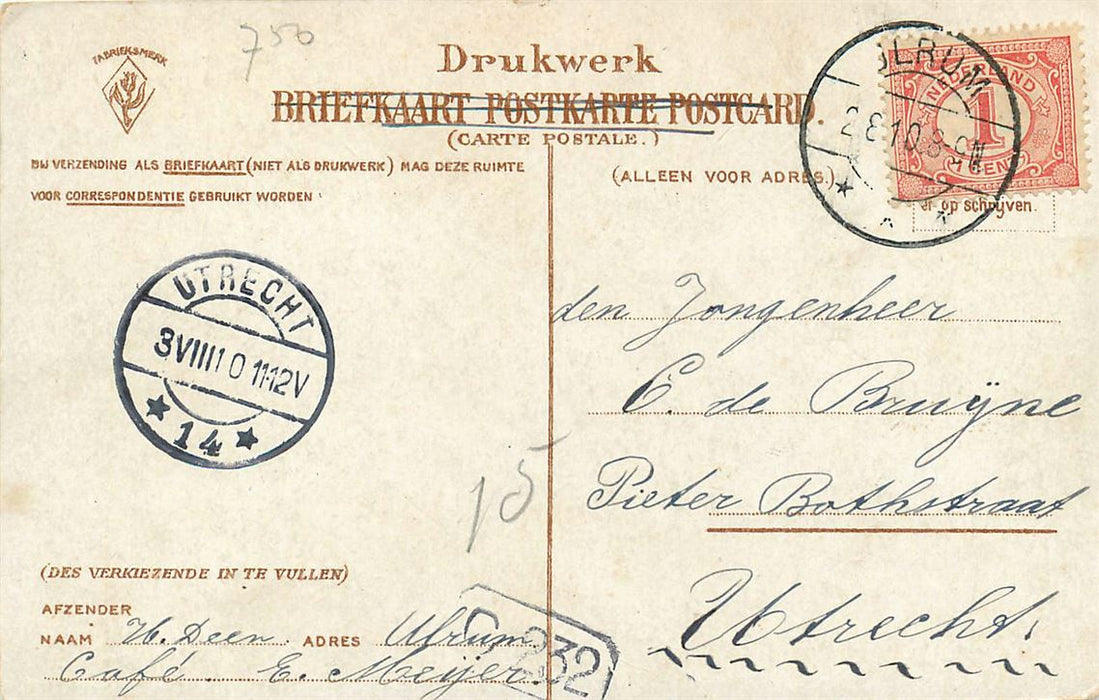 750
FABRIEKSMERK
Drukwerk
BRIEFKAART POSTKARTE POSTCARD.
(CARTE POSTALE.)
BIJ VERZENDING ALS BRIEFKAART (NIET ALS DRUKWERK) MAG DEZE RUIMTE
VOOR CORRESPONDENTIE GEBRUIKT WORDEN
(ALLEEN VOOR ADRES.)
ULRUM
2.8.10.8-9N
NEDERLAND
1
1 CENT
er op schrijven.
UTRECHT
3VIII10 11-12V
14
den Jongenheer
C. de Bruÿne
Pieter Bothstraat
Utrecht.
15
(DES VERKIEZENDE IN TE VULLEN)
AFZENDER
NAAM H. Deen ADRES Ulrum
Café E. Meijer
232